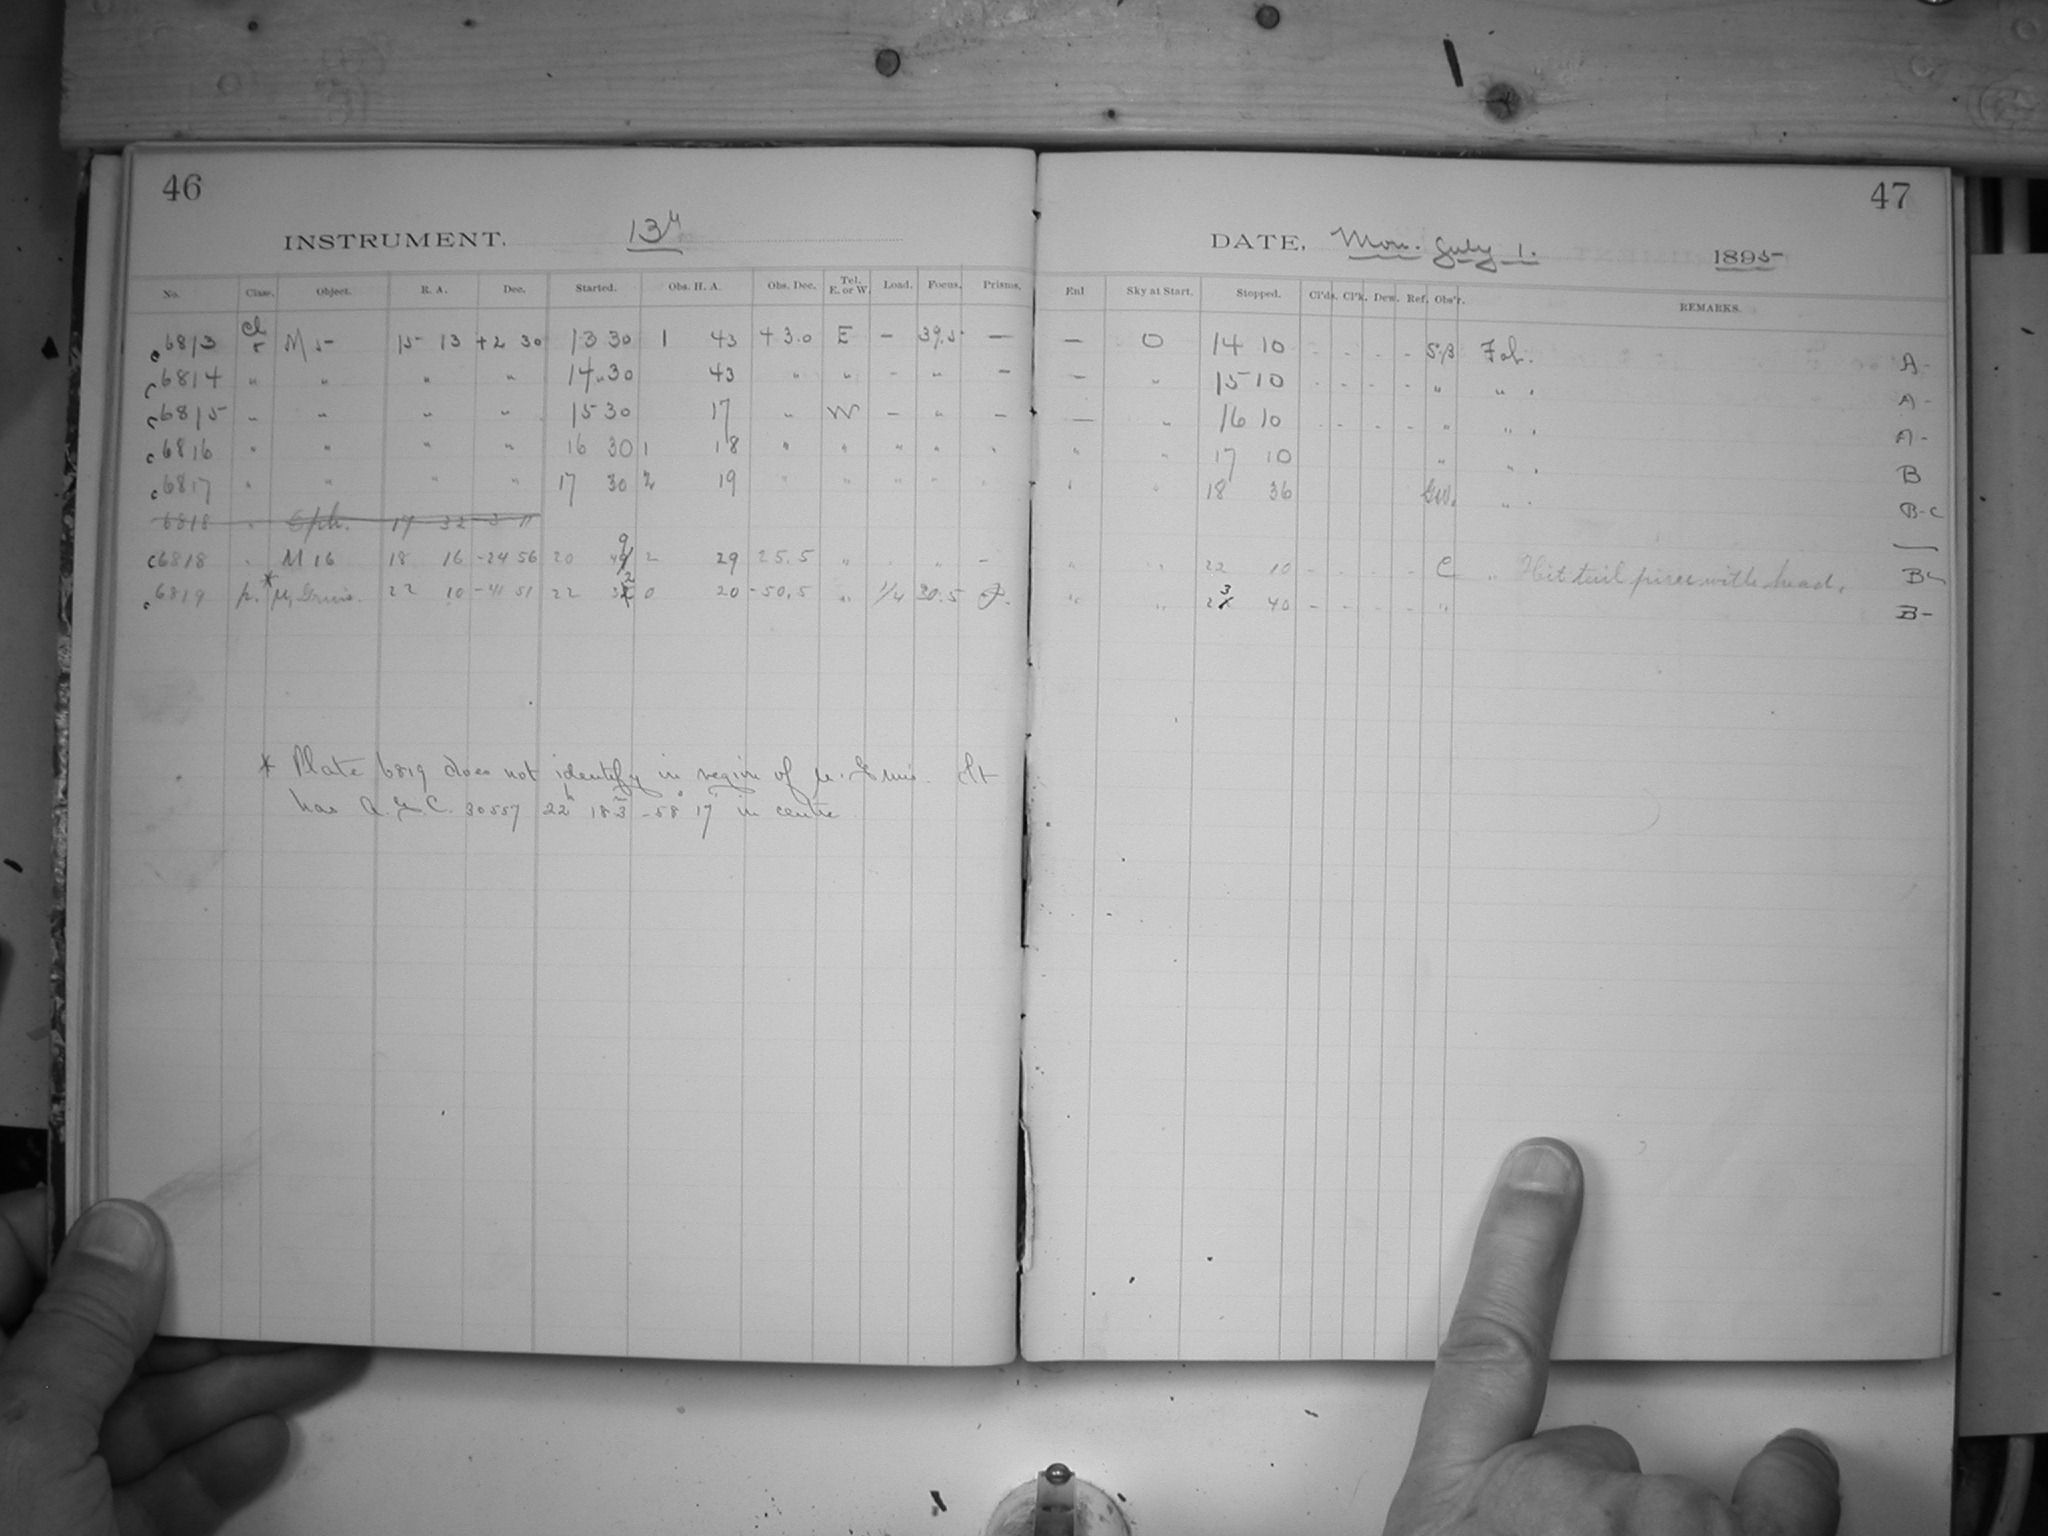 46
47
INSTRUMENT. 13"
DATE, Mon. July 1. 1895
No. Class. Object. R. A. Dec. Started. Obs. H. A. Obs. Dec. Tel. E. or W. Load. Focus. Prisms.
Enl Sky at Start. Stopped. Cl'ds. Cl'k. Dew. Ref. Obs'r. REMARKS.
c 6813 Cl M 5 15 13 +2 30 13 30 1 43 +3.0 E - 39.5 — — O 14 10 - - - - A-
c 6814 " " " " 14 30 43 " " - " - - " 15 10 - - - - " " . A-
c 6815 " " " " 15 30 17 " W - " - — " 16 10 - - - - " " . A-
c 6816 " " " " 16 30 1 18 " " " " " " " 17 10 " " . B
c 6817 " " " " 17 30 2 19 " " " " " " " 18 36 " . B-C
6818 " Oph. 17 32 -3 11
c 6818 " M 16 18 16 -24 56 20 49 2 29 25.5 " . " - " " 22 10 - - - - C " Hit tail piece with head.
c 6819 p. * μ Gruis. 22 10 -41 51 22 32 0 20 -50.5 " 1/4 30.5 " " 23 40 - - - - " B-
* Plate 6819 does not identify in region of μ. Gruis. It
has A. G. C. 30557 22h 18m3 -58° 17' in centre